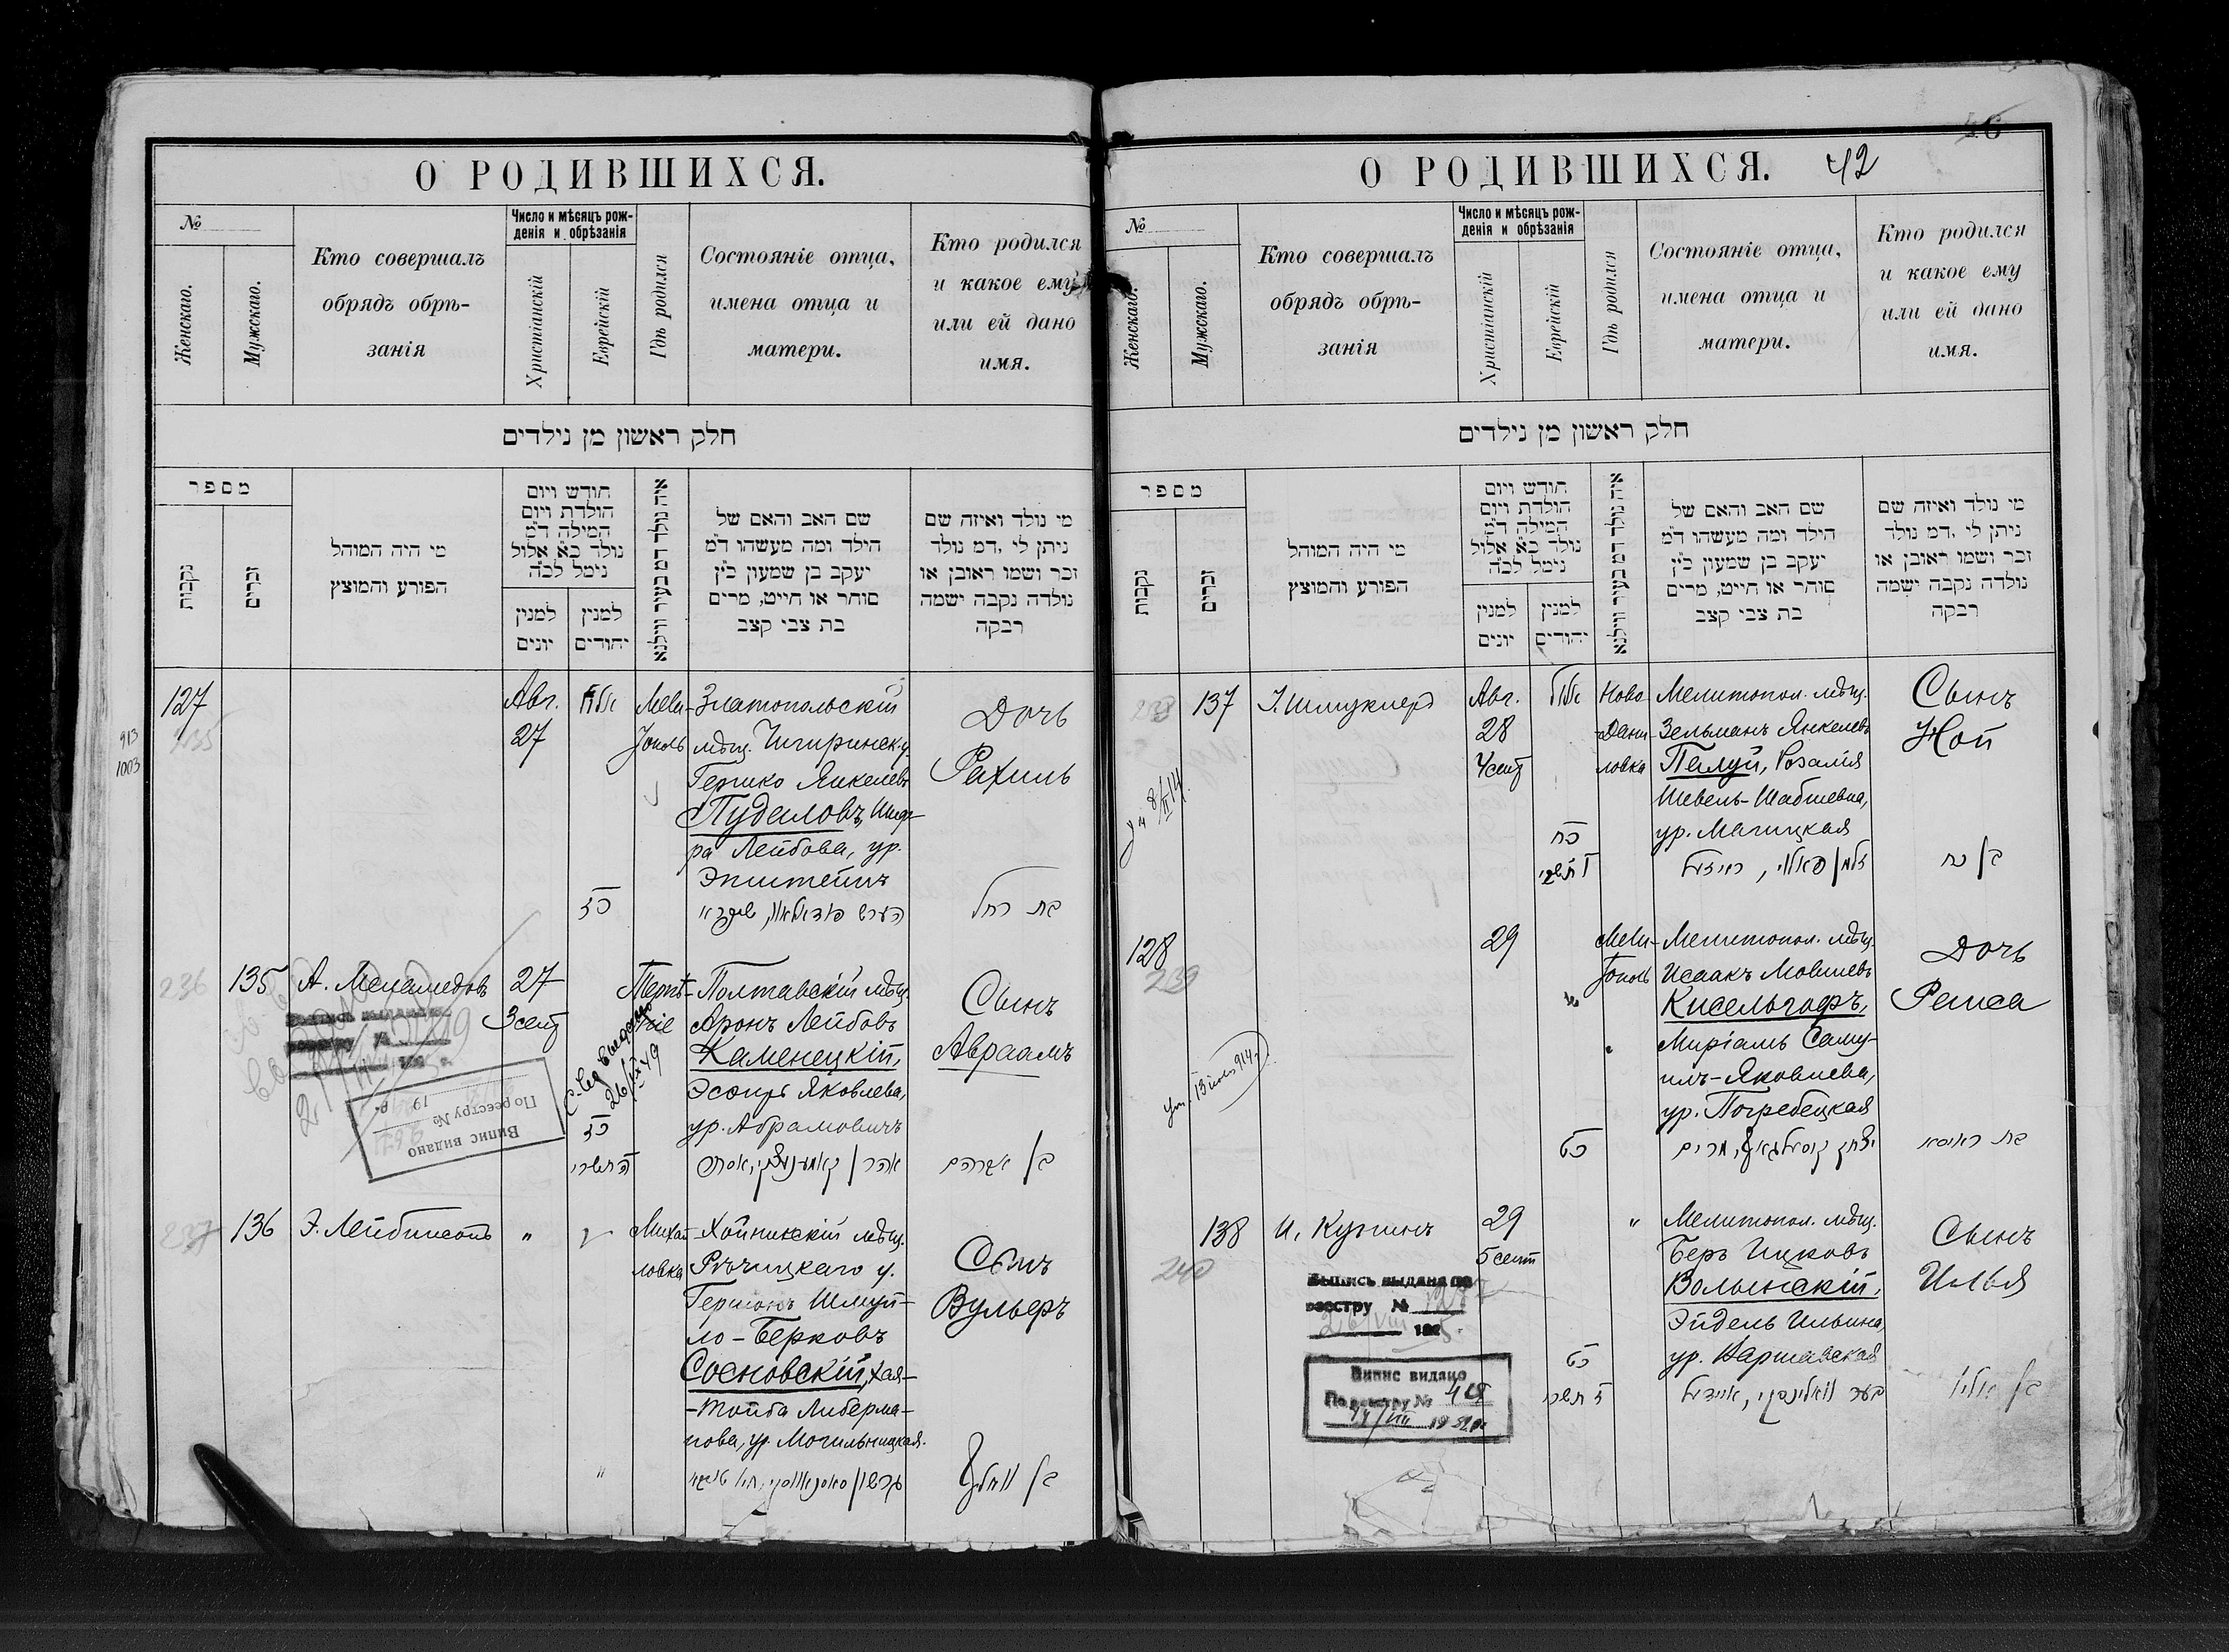 О РОДИВШИХСЯ.
№
Женскаго.
Мужскаго.
Кто совершалъ
обрядъ обрѣ-
занія
Число и мѣсяцъ рож-
денія и обрѣзанія
Христіанскій
Еврейскій
Гдѣ родился
Состояніе отца,
имена отца и
матери.
Кто родился
и какое ему
или ей дано
имя.
חלק ראשון מן נילדים
מספר
נקבות
זכרים
מי היה המוהל
הפורע והמוצץ
חודש ויום
הולדת ויום
המילה ד"מ
נולד כ"א אלול
נימל לכ"ה
למנין
יונים
למנין
יהודים
איה נולד דמ בעיר ווילנא
שם האב והאם של
הילד ומה מעשהו ד"מ
יעקב בן שמעון כ"ץ
סוחר או חייט, מרים
בת צבי קצב
מי נולד ואיזה שם
ניתן לי .דמ נולד
זכר ושמו ראובן או
נולדה נקבה ישמה
רבקה
913
1003
127
Авг.
27
אלול
כז
Мели-
тополь
Златопольскій
мѣщ. Чигиринск. у.
Гершко Янкелевъ
Пудаловъ, Шиф-
ра Лейбова, ур.
Эпштейнъ
Дочь
Рахиль
בת רחל
236
135
А. Меламедовъ
27
3 сент
כז
ה תשרי
26/IX 49
Полтавскій мѣщ.
Аронъ Лейбовъ
Каменецкій,
Эсѳирь Яковлева,
ур. Абрамовичъ
Сынъ
Авраамъ
בן אברהם
Випис видано
По реестру №
19 р.
237
136
Э. Лейбинсонъ
"
Михай-
ловка
Хойникскій мѣщ.
Рѣчицкаго у.
Гершонъ Шмуй-
ло-Берковъ
Сосновскій, Хая-
-Тойба Либерма-
нова, ур. Могильницкая.
"
Сынъ
Вульфъ
בן וואלף
О РОДИВШИХСЯ.
42
46
№
Женскаго.
Мужскаго.
Кто совершалъ
обрядъ обрѣ-
занія
Число и мѣсяцъ рож-
денія и обрѣзанія
Христіанскій
Еврейскій
Гдѣ родился
Состояніе отца,
имена отца и
матери.
Кто родился
и какое ему
или ей дано
имя.
חלק ראשון מן נילדים
מספר
נקבות
זכרים
מי היה המוהל
הפורע והמוצץ
חודש ויום
הולדת ויום
המילה ד"מ
נולד כ"א אלול
נימל לכ"ה
למנין
יונים
למנין
יהודים
איה נולד דמ בעיר ווילנא
שם האב והאם של
הילד ומה מעשהו ד"מ
יעקב בן שמעון כ"ץ
סוחר או חייט, מרים
בת צבי קצב
מי נולד ואיזה שם
ניתן לי .דמ נולד
זכר ושמו ראובן או
נולדה נקבה ישמה
רבקה
238
137
І. Шмуклеръ
Авг.
28
4 сент
אלול
כח
ו תשרי
Ново
-Дани-
ловка
Мелитопол. мѣщ.
Зельманъ Янкелевъ
Палуй, Розалія
Шевель-Шабшевна,
ур. Магицкая
Сынъ
Ной
בן נח
128
239
29
Мели-
тополь
Мелитопол. мѣщ.
Исаакъ Мовшевъ
Кисельгофъ,
Миріамъ Саму-
илъ-Яковлева,
ур. Погребецкая
כט
Дочь
Раиса
138
240
И. Кугинъ
29
5 сент
כט
ז תשרי
"
Мелитопол. мѣщ.
Беръ Ицковъ
Волынскій,
Эйдель Ильина,
ур. Варшавская
Сынъ
Илья
בן אליהו
Выпись выдана по
реестру №
Випис видано
По реестру №